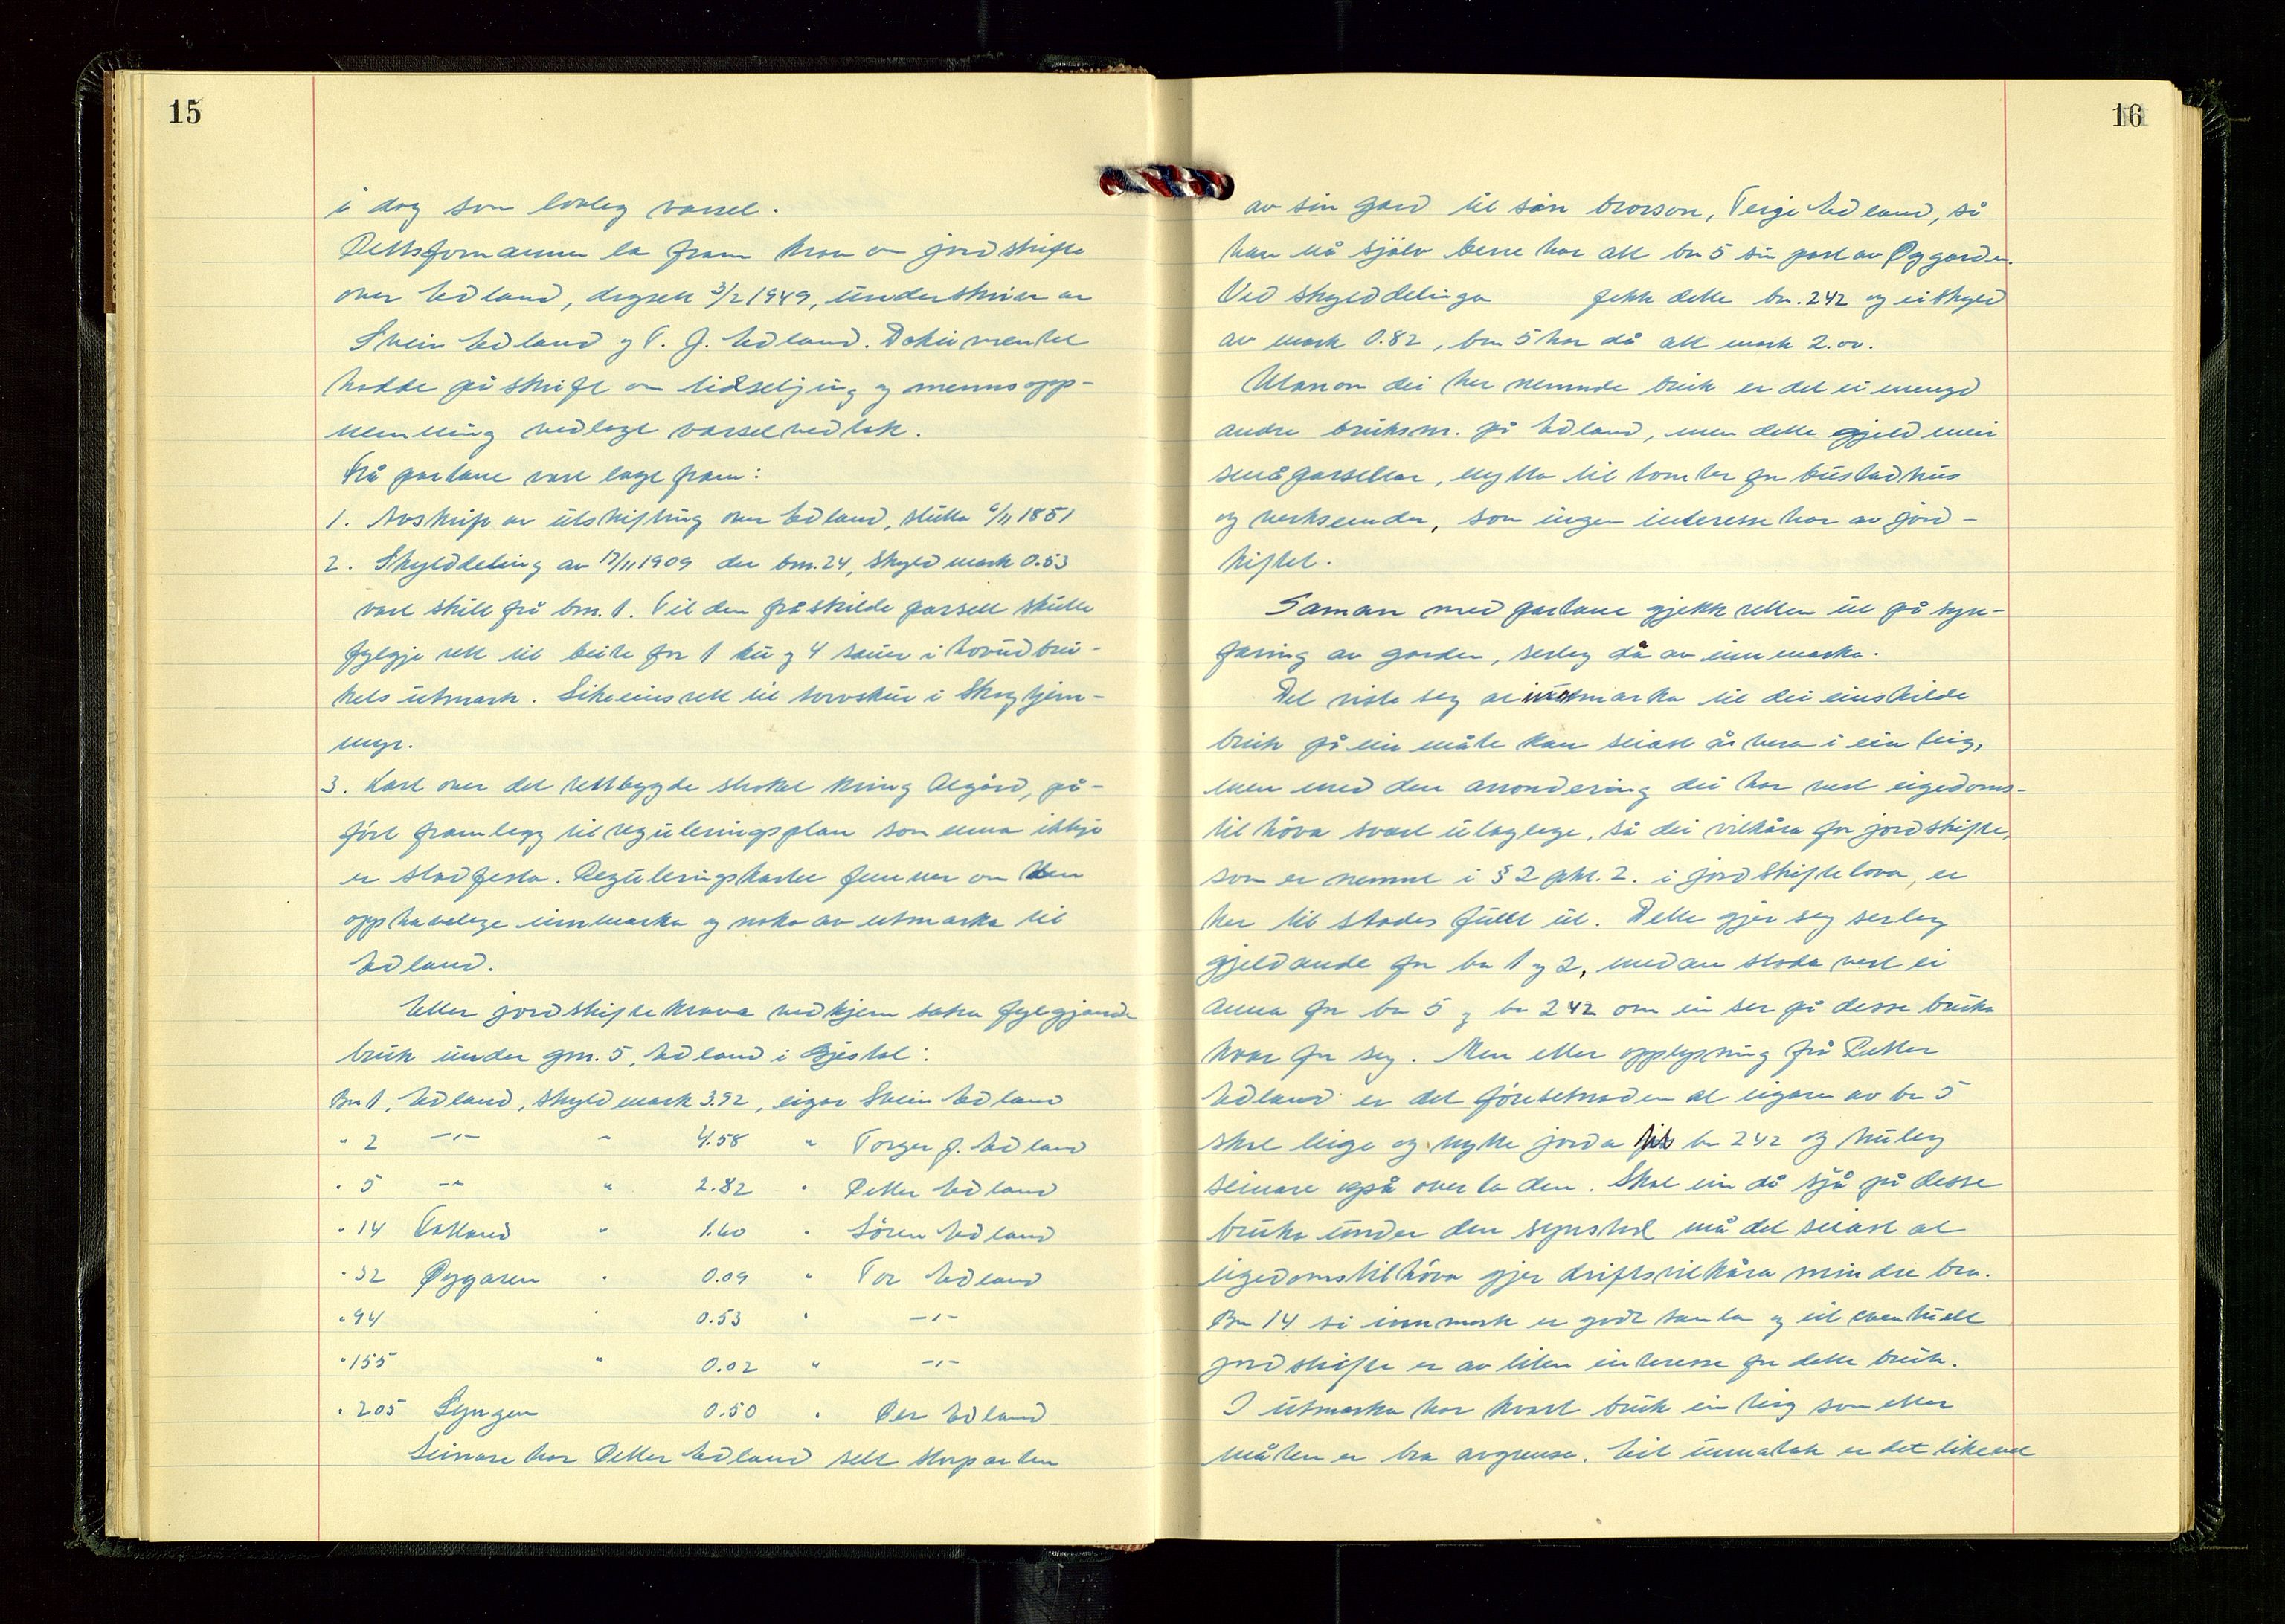 15
i dag som lovleg varsel.
Rettsformannen la fram krav om jordskifte
over Edland, dagsett 3/2 1949, underskrive av
Svein Edland og T. J. Edland. Dokumentet
hadde påskrift om tidsetjing og mennsopp-
nemning vedlagt varselvedtak.
Frå partane vart lagt fram:
1. Avskrift av utskifting over Edland, slutta 6/11 1851
2. Skylddeling av 17/11 1909 der bnr. 24, skyld mark 0.53
vart skilt frå bnr. 1. Til den fråskilde parsell skulle
fylgje rett til beite for 1 ku og 4 sauer i hovudbru-
kets utmark. Likeeins rett til torvskur i Skogtjern-
myr.
3. Kart over det tettbygde stroket kring Ålgård, på-
ført framlegg til reguleringsplan som enna ikkje
er stadfesta. Reguleringskartet femner om den
opphavelege innmarka og noko av utmarka til
Edland.
Etter jordskiftekrava vedkjem saka fylgjande
bruk under gnr. 5, Edland i Gjestal:
Bnr 1, Edland, skyld mark 3.92, eigar Svein Edland
" 2 -"- " 4.58 " Torger J. Edland
" 5 -"- " 2.82 " Petter Edland
" 14 " 1.60 " Sören Edland
" 32 Øygaren " 0.09 " Tor Edland
" 94 " 0.53 " -"-
" 155 " 0.02 " -"-
" 205 Lyngen 0.50 " Per Edland
Seinare har Petter Edland selt storparten
16
av sin gard til sin brorson, Terje Edland, så
han nå sjölv berre har att bnr 5 sin part av Øygarden.
Ved skylddelinga fekk dette bnr. 242 og ei skyld
av mark 0.82, bnr 5 har då att mark 2.00.
Utanom dei her nemnde bruk er det ei mengd
andre bruksnr. på Edland, men dette gjeld meir
småparsellar, nytta til tomter for bustadhus
og verksemder, som ingen interesse har av jord-
kiftet.
Saman med partane gjekk retten ut på syn-
faring av garden, serleg då av innmarka.
Det viste seg at innmarka til dei einskilde
bruk på ein måte kan seiast å vera i ein teig,
men med den arrondering dei har vert eigedoms-
tilhöva svært ulaglege, så dei vilkåra for jordskifte,
som er nemnt i § 2 pkt. 2. i jordskiftelova, er
her til stades fullt ut. Dette gjer seg serleg
gjeldande for bnr 1 og 2, medan stoda vert ei
anna for bnr 5 og bnr 242 om ein ser på desse bruka
kvar for seg. Men etter opplysning frå Petter
Edland er det föresetnaden at eigaren av bnr 5
skal leige og nytte jorda til bnr 242 og truleg
seinare også overta den. Skal ein då sjå på desse
bruka under den synsstad må det seiast at
eigedomstilhöva gjer driftsvilkåra mindre bra.
Bnr 14 si innmark er godt samla og eit eventuelt
jordskifte er av liten interesse for dette bruk.
I utmarka har kvart bruk ein teig som etter
måten er bra avgrensa. Eit unnatak er det likevel